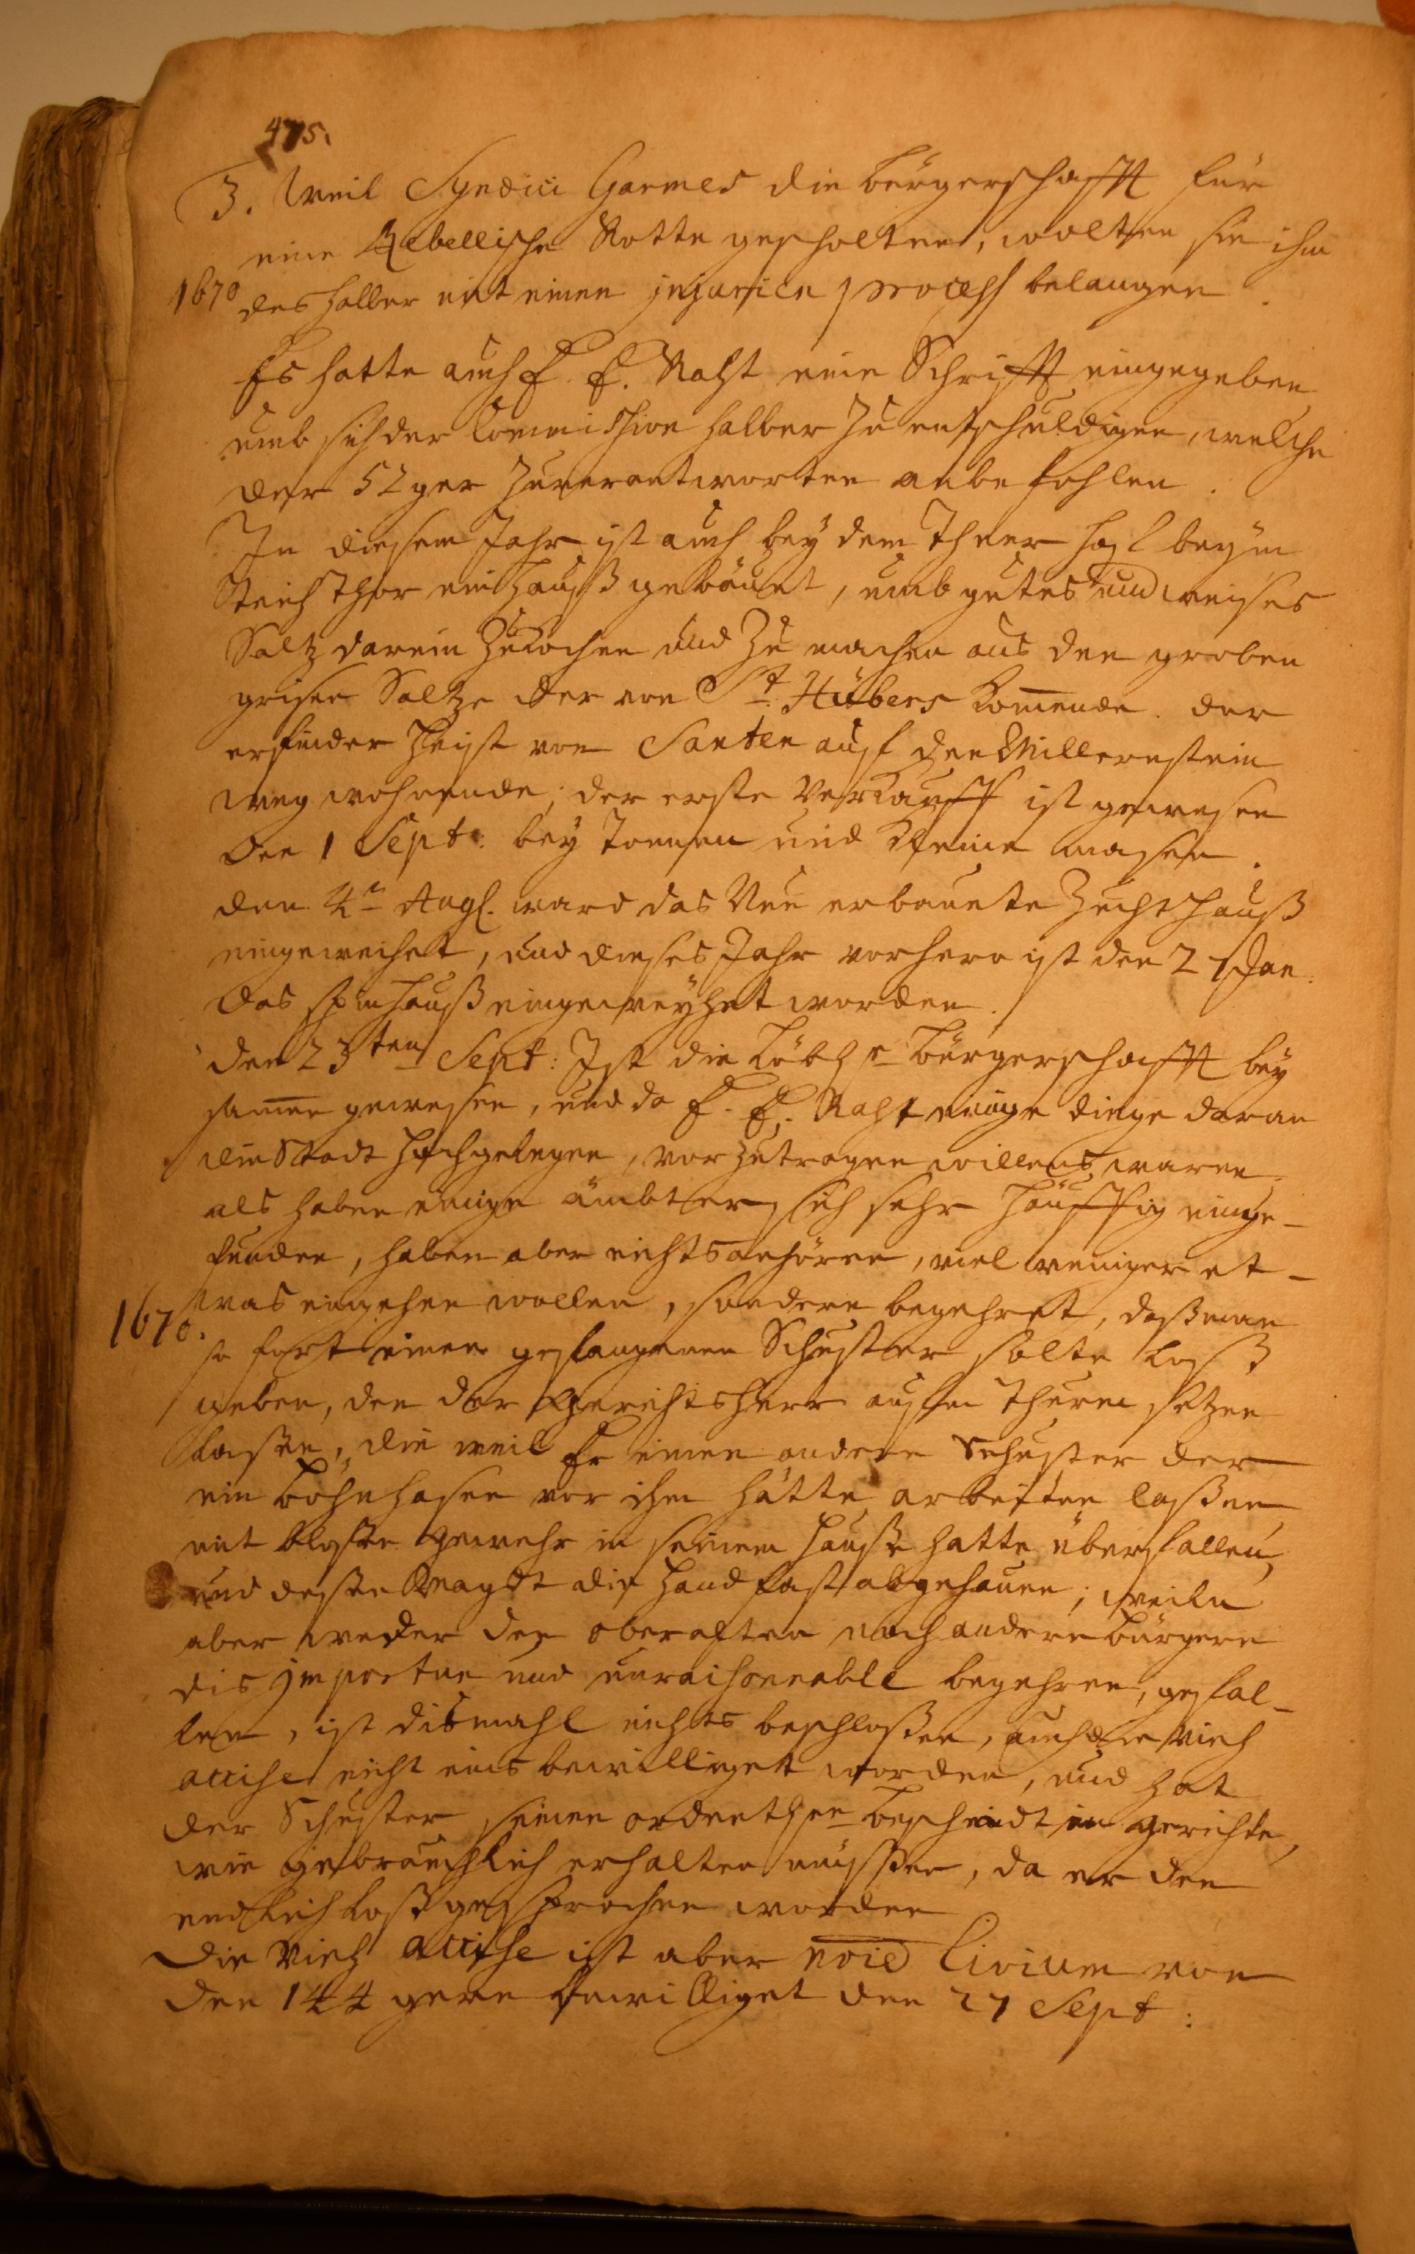 475.
3. Weil Syndici Garmes die bürgerschafft für
eine Rebellische Rotte gescholten, wolten sie ihm
1670 deshalber mit einen injurien process belangen.
Es hatte auch E. E. Raht eine Schrifft eingegeben
umb sich der Commission halber zu entschuldigen, welche
der 52ger zuverantworten anbefohlen.
In diesem Jahr ist auch bey dem Theer hof beym
Steinthor ein Hauß gebauet, umb gutes und weises
Saltz darein zukochen und zu machen aus den groben
grisen Saltze der von St. Hübers komende. der
erfinder heist von Santen auf den Millernstein
weg wohnende; der erste verkauff ist gewesen
den 1 Sept: bey Tonnen und kleine masen.
den 4n Augs. ward das Neu erbauete Zuchthauß
eingeweihet, und dieses Jahr vorhero ist den 21 Jan.
das spinhauß eingeweyhet worden.
den 23ten Sept: Ist die Löbl. bürgerschafft bey
samen gewesen, und da E. E. Raht einige dinge daran
die Stadt hochgelegen, vorzutragen willens waren
als haben einige ämbter sich sehr häuffig einge-
funden, haben aber nichts anhören, viel weniger et-
1670. was eingehen wollen, sondern begehret, daß man
so fort einen gefangenen Schuster solte loß
geben, den der Gerichtsherr auf den Thurm setzen
laßen, die weil Er einen andern Schuster der
ein böhnhasen vor ihm hätte arbeiten laßen
mit bloßen gewehr in seinem Hauße hatte überfallen,
und deßen Magdt die Hand fast abgehauen; weiln
aber weder den oberalten noch andern bürgern
dis importun und unraisonnable begehren, gefal-
len, ist dismahl nichts beschloßen, auch die Vieh
accise nicht eins bewilliget worden, und hat
der Schuster seinen ordentlichen bescheidt im gerichte,
wie gebräuchlich erhalten müssen, da er den
endlich loß gesprochen worden
Die Vieh accise ist aber noie Civium von
den 144 gern bewilliget den 27 Sept: